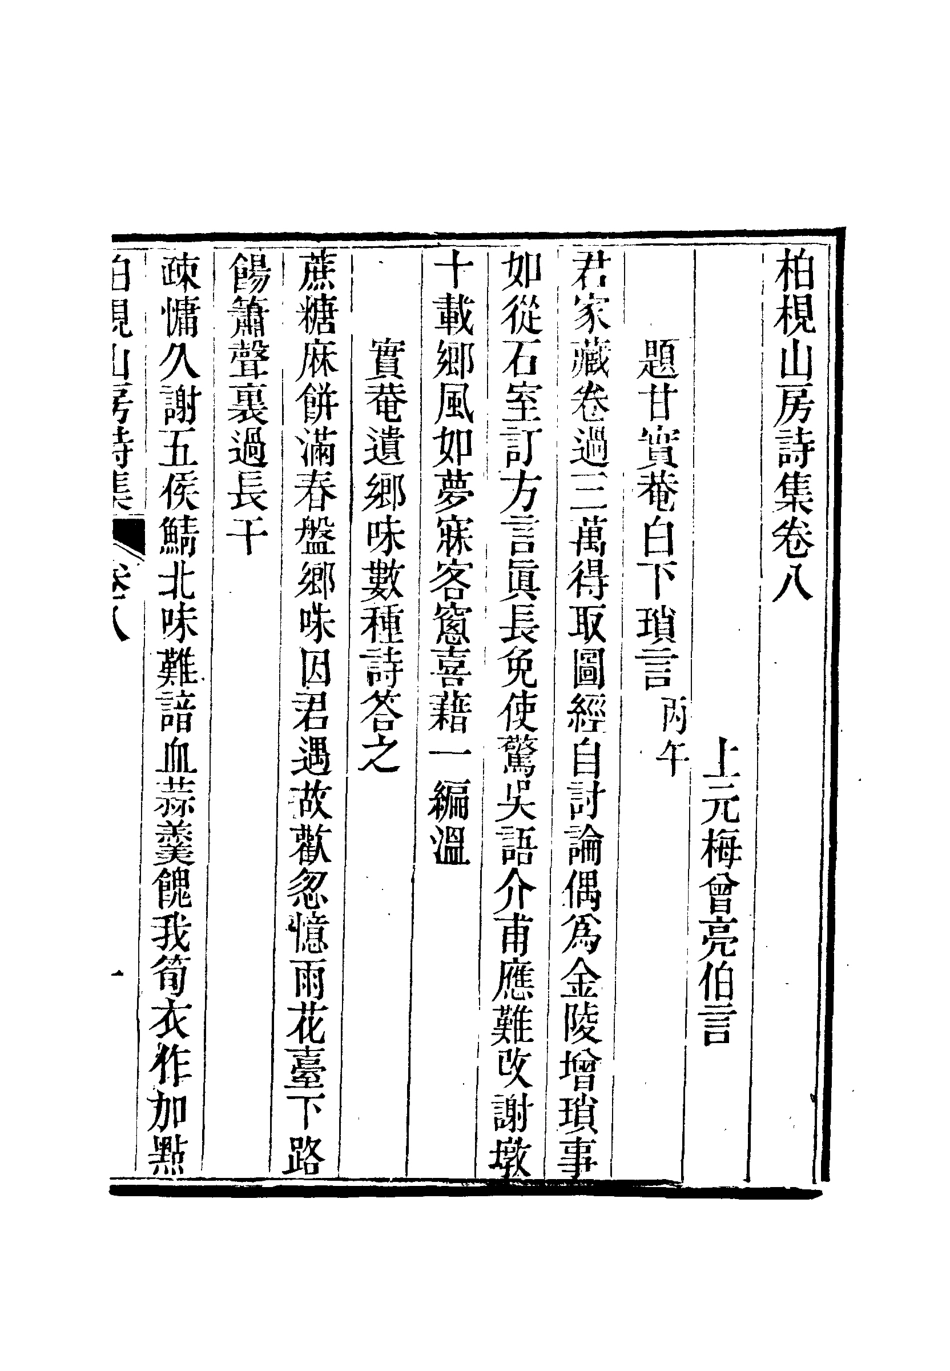 柏梘山房詩集卷八
上元梅曾亮伯言
題甘實菴白下瑣言丙午
君家藏卷過三萬得取圖經自討論偶爲金陵增瑣事
如從石室訂方言眞長免使驚吳語介甫應難改謝墩
十載鄉風如夢寐客窻喜藉一編溫
實菴遺鄉味數種詩答之
蔗糖麻餅滿春盤鄉味因君遇故歡忽憶雨花臺下路
餳簫聲裏過長干
疎慵久謝五侯鯖北味難諳血蒜羹餽我筍衣作加點
柏梘山房詩集 卷八 一